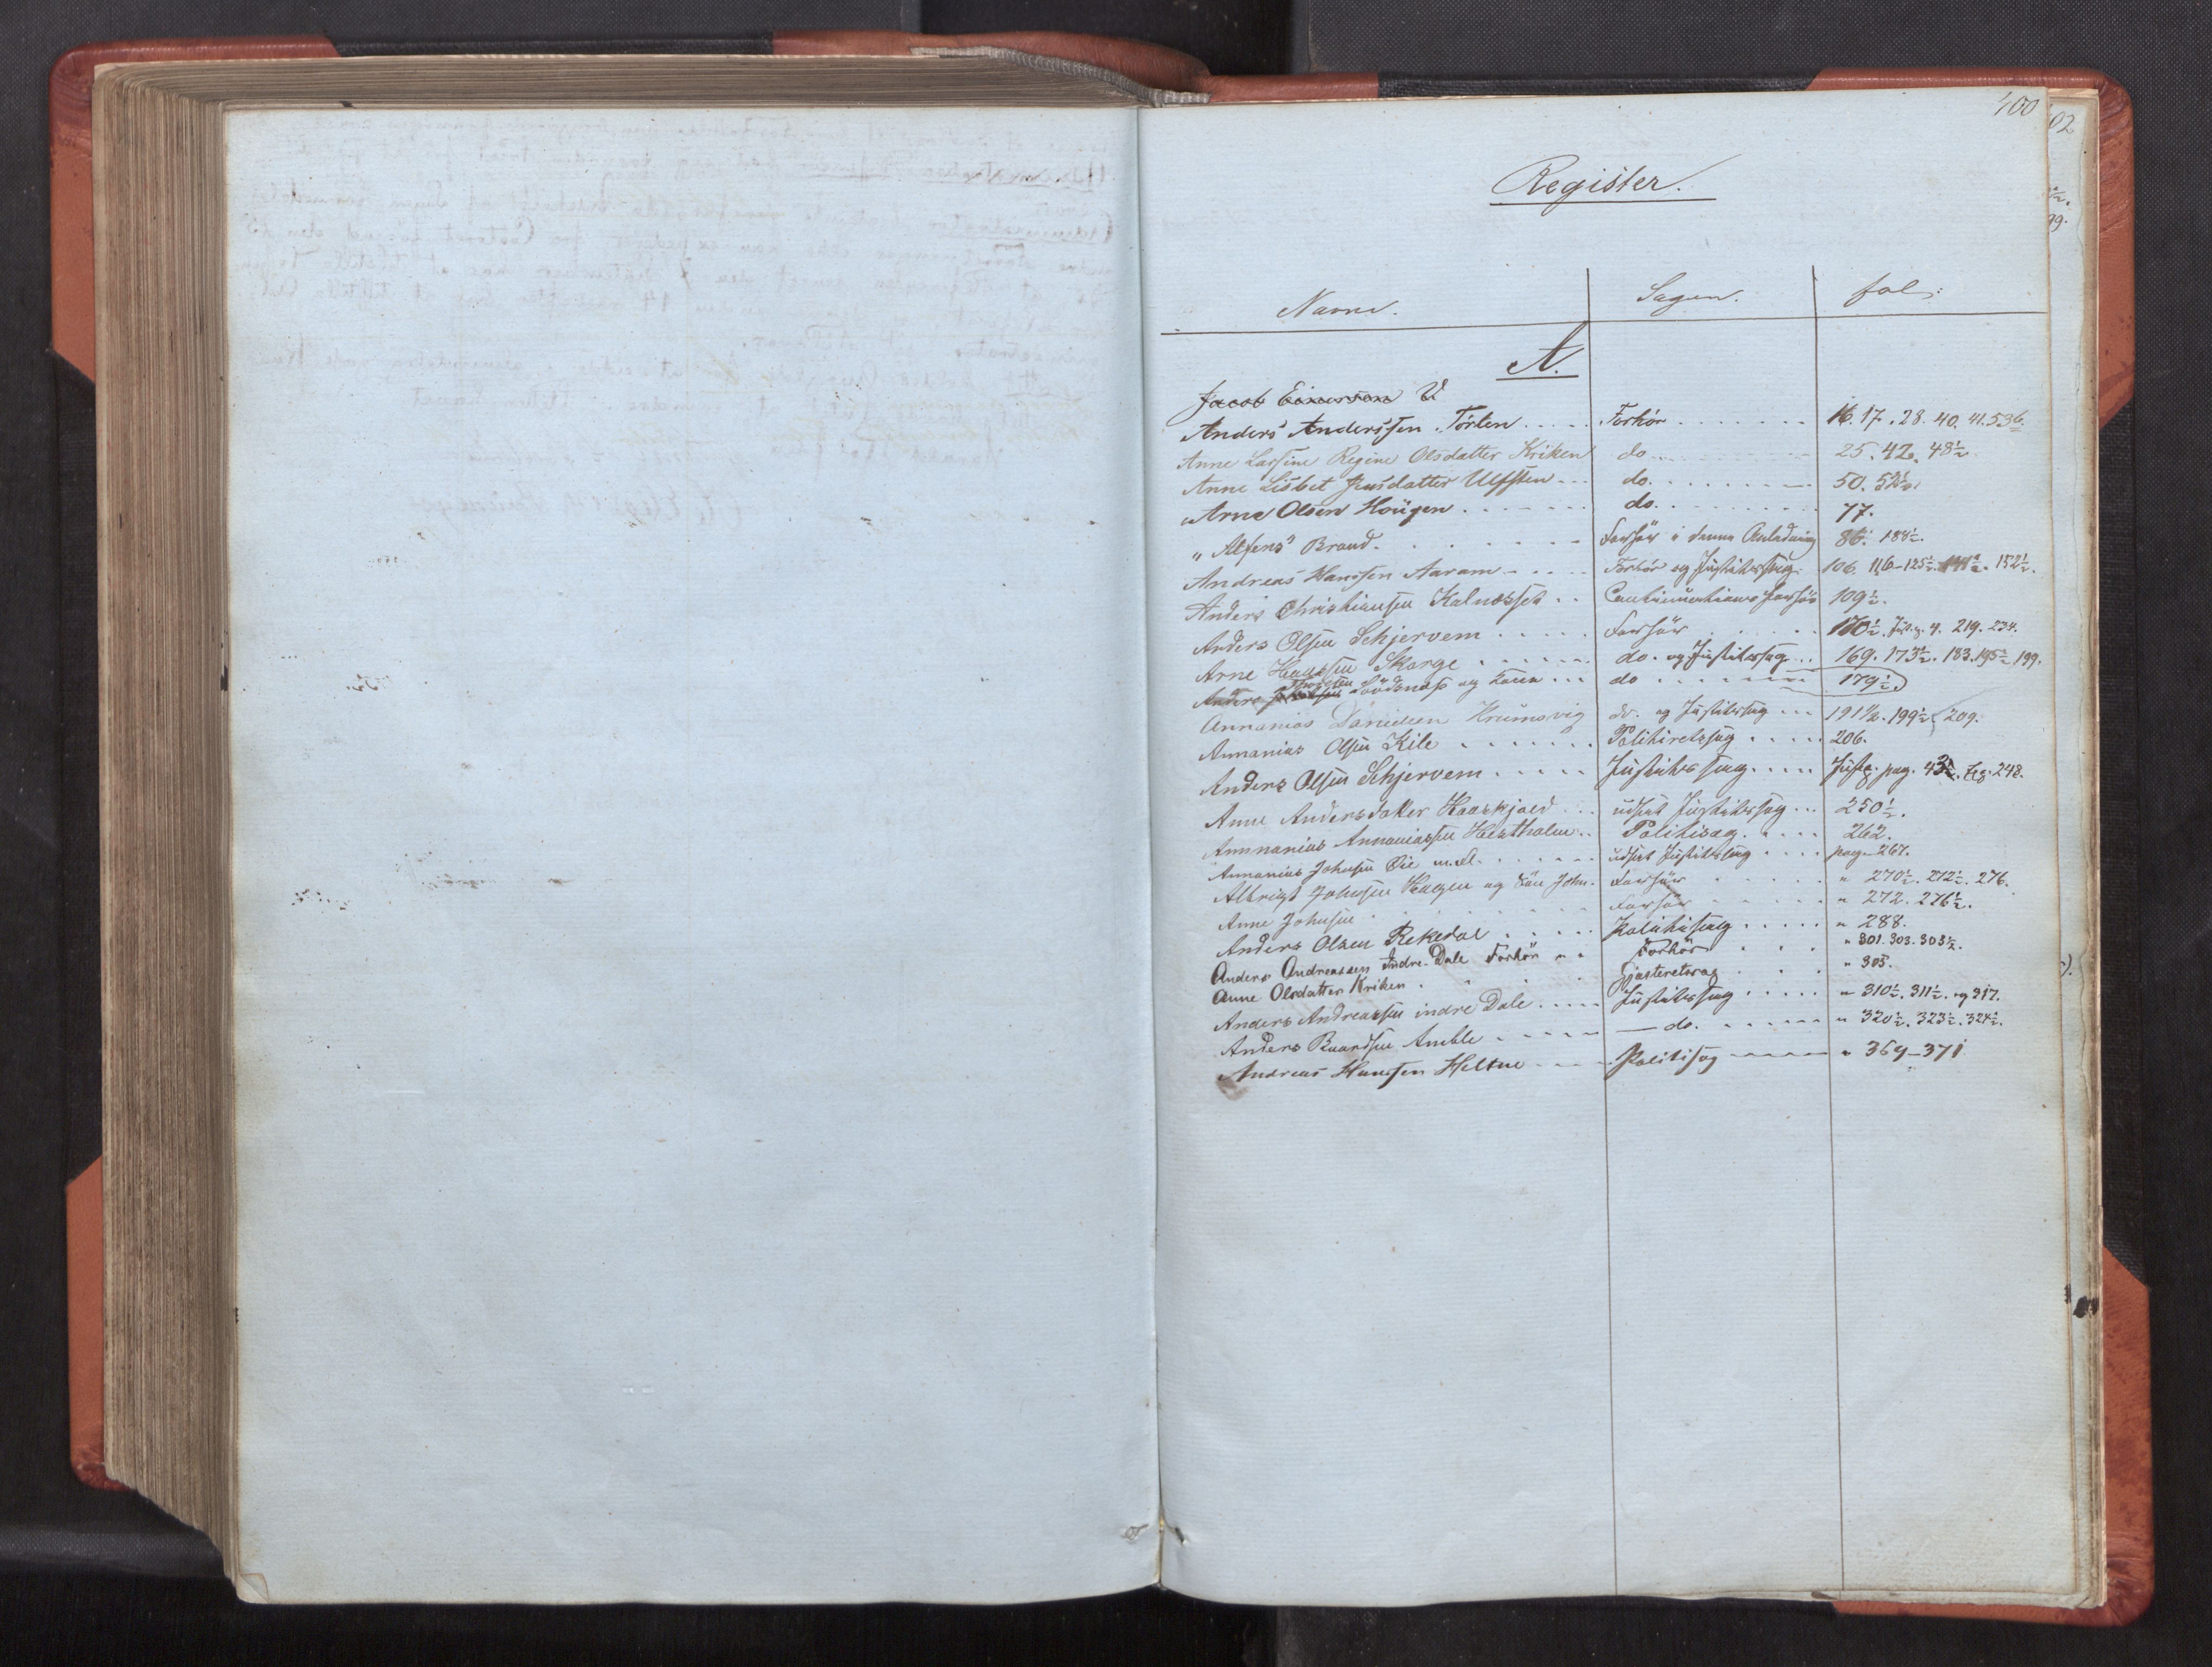 400
Register.
Navne. Sagen. fol:
A.
Jacob Einarssen U
Anders Anderssen Tørlen Forhør 16. 17. 28. 40. 41. 53
Anne Larsine Regine Olsdatter Kriken do 25. 42. 48½
Anne Lisbet Jensdatter Ulfsten do. 50. 52½
Arne Olsen Hougen do. 77.
"Alfens" Brand. Forhør i denne Anledning 86. 188½.
Andreas Hanssen Aaram Forhør og Justitssag. 106. 116-125½. 141½. 152½.
Anders Christiansen Kalnæsset Continuations forhør 109½.
Anders Olsen Schjervem Forhør 170½. 4. 219. 234.
Arne Skorge do. og Justitssag 169. 173½. 183. 195½ 199.
Anders Lødsnap og do 179½
Annanias Danielsen do. og Justitssag 191½. 199½ 209.
Annanias Olsen Kile Politiretssag 206.
Anders Olsen Schjervem Justitssag Just. pag. 43 248.
Anne Andersdatter Haaskjold udsat Justitssag 250½.
Annanias Annaniassen Hestholm Politisag. 262.
Annanias Johnsen Øie m. fl. udsat Justitssag pag. 267.
Albrigt Johnsen Hagen og Søn John. Forhør " 270½. 272½. 276.
Anne Johnsen Forhør " 272. 276½.
Anders Olsen Rekedal Politisag " 288.
Anders Andreassen Indre-Dale Forhør Forhør " 301. 303. 303½.
Anne Olsdatter Kriken Gjesteretssag " 305.
Anders Andreassen indre Dale Justitssag " 310½. 311½. og 317.
Anders Baardsen Amble do. " 320½. 323½. 324½.
Andreas Hanssen Heltne Politisag " 369-371